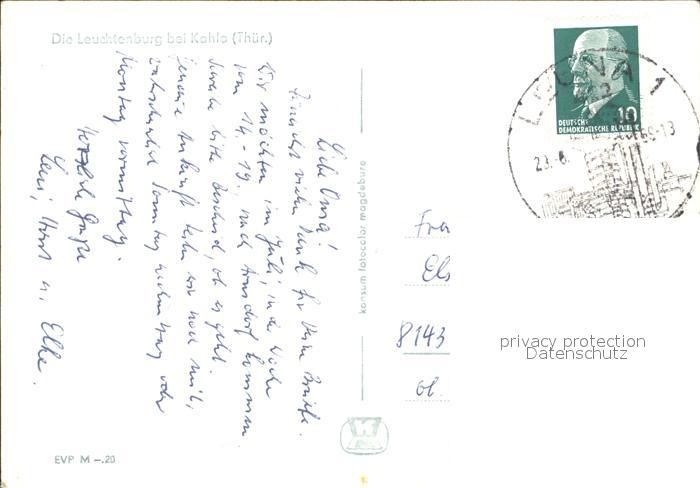 Die Leuchtenburg bei Kahla (Thür.)
Liebe Oma!
Zunächst vielen Dank für Deine Briefe.
Wir möchten im Juli, in der Woche
vom 14.-19., nach Arnsdorf kommen.
Schreibe bitte Bescheid, ob es geht.
genaue Ankunft teilen wir noch mit,
wahrscheinlich Sonntag nachmittag oder
Montag vormittag.
Herzliche Grüße
Horst u. Elke.
konsum fotocolor magdeburg
EVP M -.20
DEUTSCHE
DEMOKRATISCHE REPUBLIK
10
LEUNA 1
Frau
Els
8143
privacy protection
Datenschutz